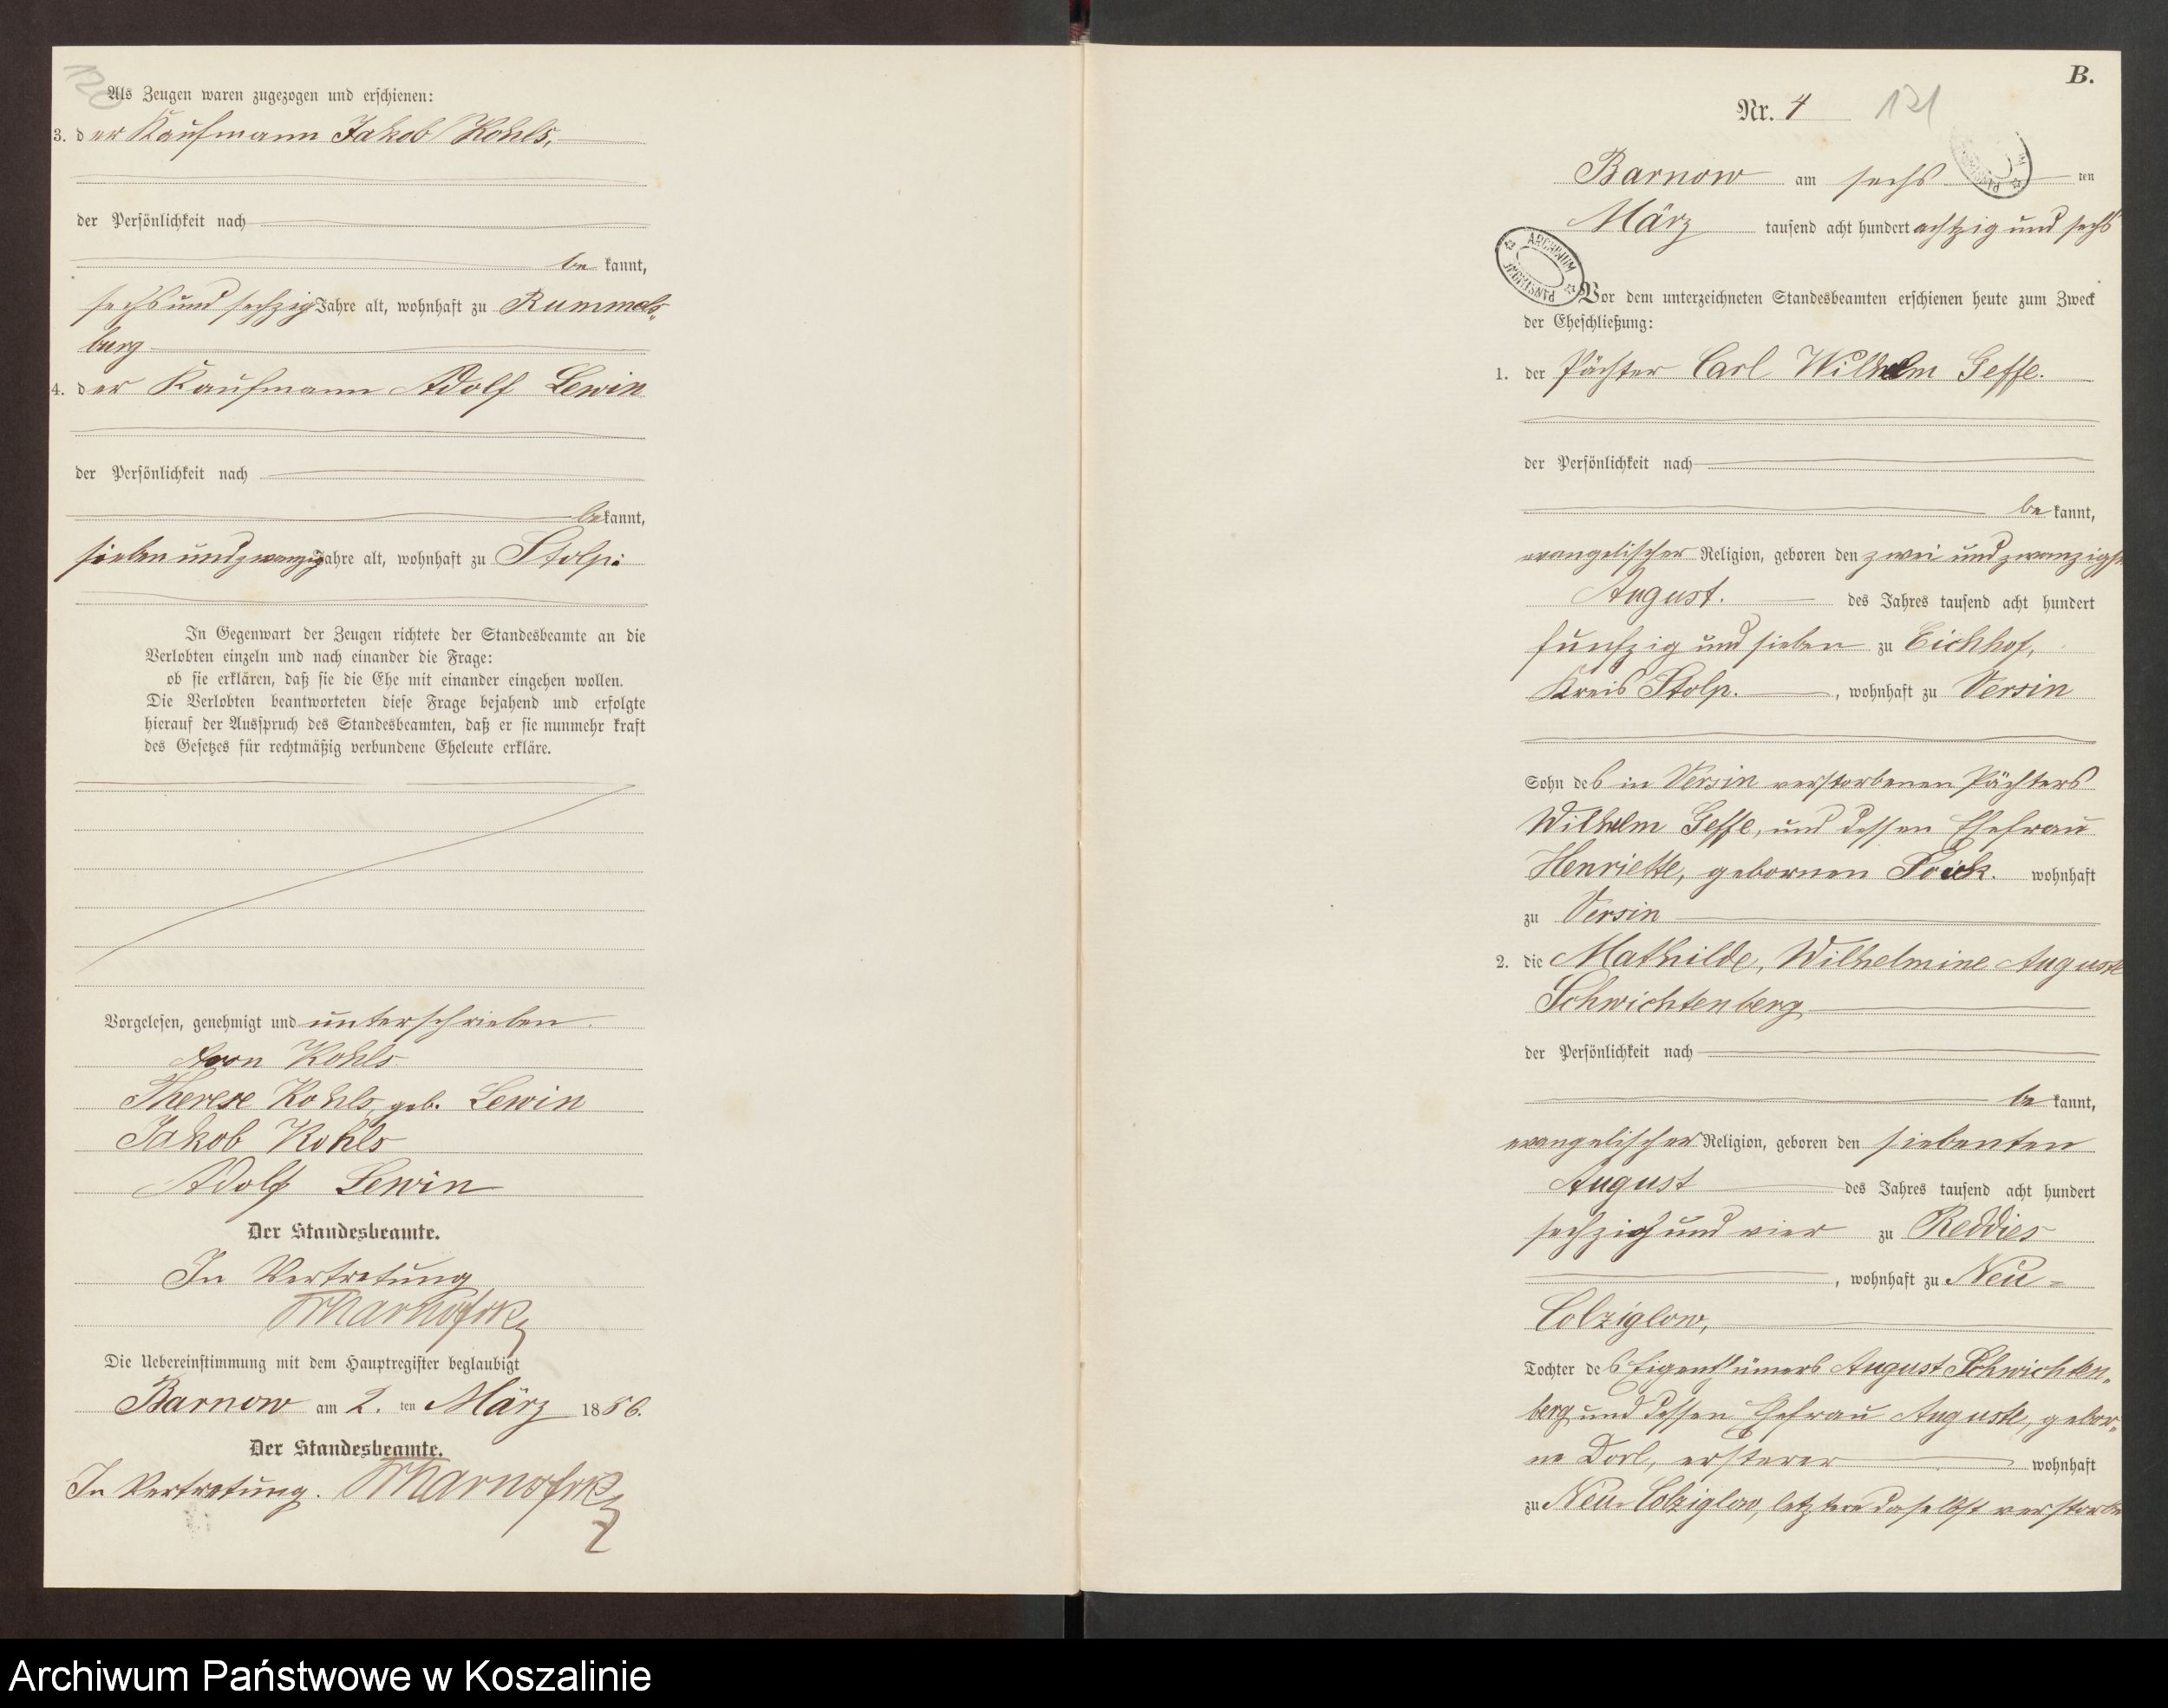 120
Als Zeugen waren zugezogen und erschienen:
3. der Kaufmann Jakob Kohls,
der Persönlichkeit nach
be kannt,
sechs und sechzig Jahre alt, wohnhaft zu Rummels-
burg
4. der Kaufmann Adolf Lewin
der Persönlichkeit nach
bekannt,
sieben und zwanzig Jahre alt, wohnhaft zu Stolp.
In Gegenwart der Zeugen richtete der Standesbeamte an die
Verlobten einzeln und nach einander die Frage:
ob sie erklären, daß sie die Ehe mit einander eingehen wollen.
Die Verlobten beantworteten diese Frage bejahend und erfolgte
hierauf der Ausspruch des Standesbeamten, daß er sie nunmehr kraft
des Gesetzes für rechtmäßig verbundene Eheleute erkläre.
Vorgelesen, genehmigt und unterschrieben.
Aron Kohls
Therese Kohls, geb. Lewin
Jakob Kohls
Adolf Lewin
Der Standesbeamte.
In Vertretung
Die Uebereinstimmung mit dem Hauptregister beglaubigt
Barnow am 2. ten März 1886.
Der Standesbeamte.
In Vertretung.
B.
Nr. 4 121
Barnow am sechs ten
März tausend acht hundert achtzig und sechs
ARCHIWUM PAŃSTWOWE
Vor dem unterzeichneten Standesbeamten erschienen heute zum Zweck
der Eheschließung:
1. der Pächter Carl Wilhelm Geffe.
der Persönlichkeit nach
be kannt,
evangelischer Religion, geboren den zwei und zwanzigsten
August. des Jahres tausend acht hundert
fünfzig und sieben zu Eichhof,
Kreis Stolp. , wohnhaft zu Versin
Sohn des in Versin verstorbenen Pächters
Wilhelm Geffe, und dessen Ehefrau
Henriette, gebornen wohnhaft
zu Versin
2. die Mathilde, Wilhelmine Auguste
Schwichtenberg
der Persönlichkeit nach
be kannt,
evangelischer Religion, geboren den siebenten
August des Jahres tausend acht hundert
sechzig und vier zu Reddies
, wohnhaft zu Neu-
Colziglow,
Tochter des Eigenthümers August Schwichten-
berg und dessen Ehefrau Auguste, gebor-
ne Dorl, ersterer wohnhaft
zu Neu-Colziglow, letztere daselbst verstorben
Archiwum Państwowe w Koszalinie